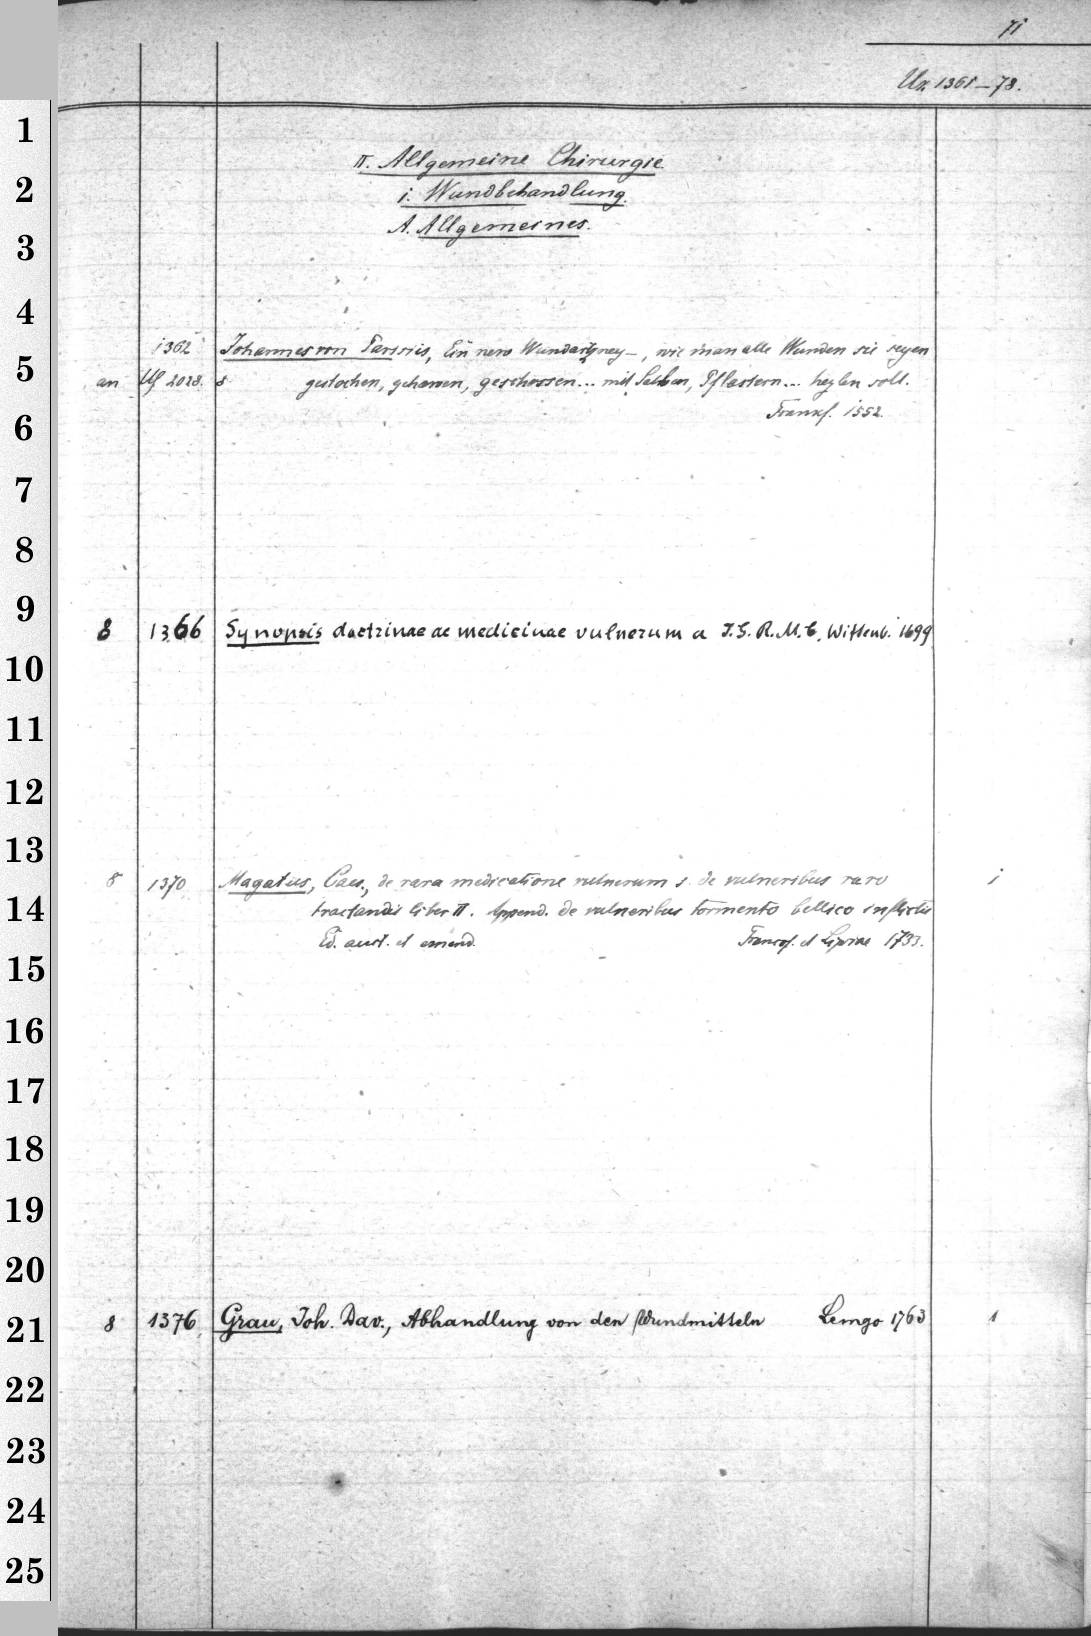 71
Ux 1361-78.
1
II. Allgemeine Chirurgie
2
1. Wundbehandlung.
3
A. Allgemeines.
4
1362 Johannes von Parisiis, Ein new Wundartzney-, wie man alle Wunden sie seyen
5
an Uf 2028. 8 gestochen, gehawen, geschossen... mit Salben, Pflastern... heylen soll.
6
Frankf. 1552.
7
8
9
8 1366 Synopsis doctrinae ac medicinae vulnerum a J.G.R.M.C. Wittenb. 1699
10
11
12
13
8 1370 Magatus, Caes., de rara medicatione vulnerum s. de vulneribus raro 1
14
tractandis liber II. Append. de vulneribus tormento bellico inflictis
15
Ed. auct. et emend. Francof. et Lipsiae 1733.
16
17
18
19
20
21
8 1376 Grau, Joh. Dav., Abhandlung von den Wundmitteln Lemgo 1763 1
22
23
24
25